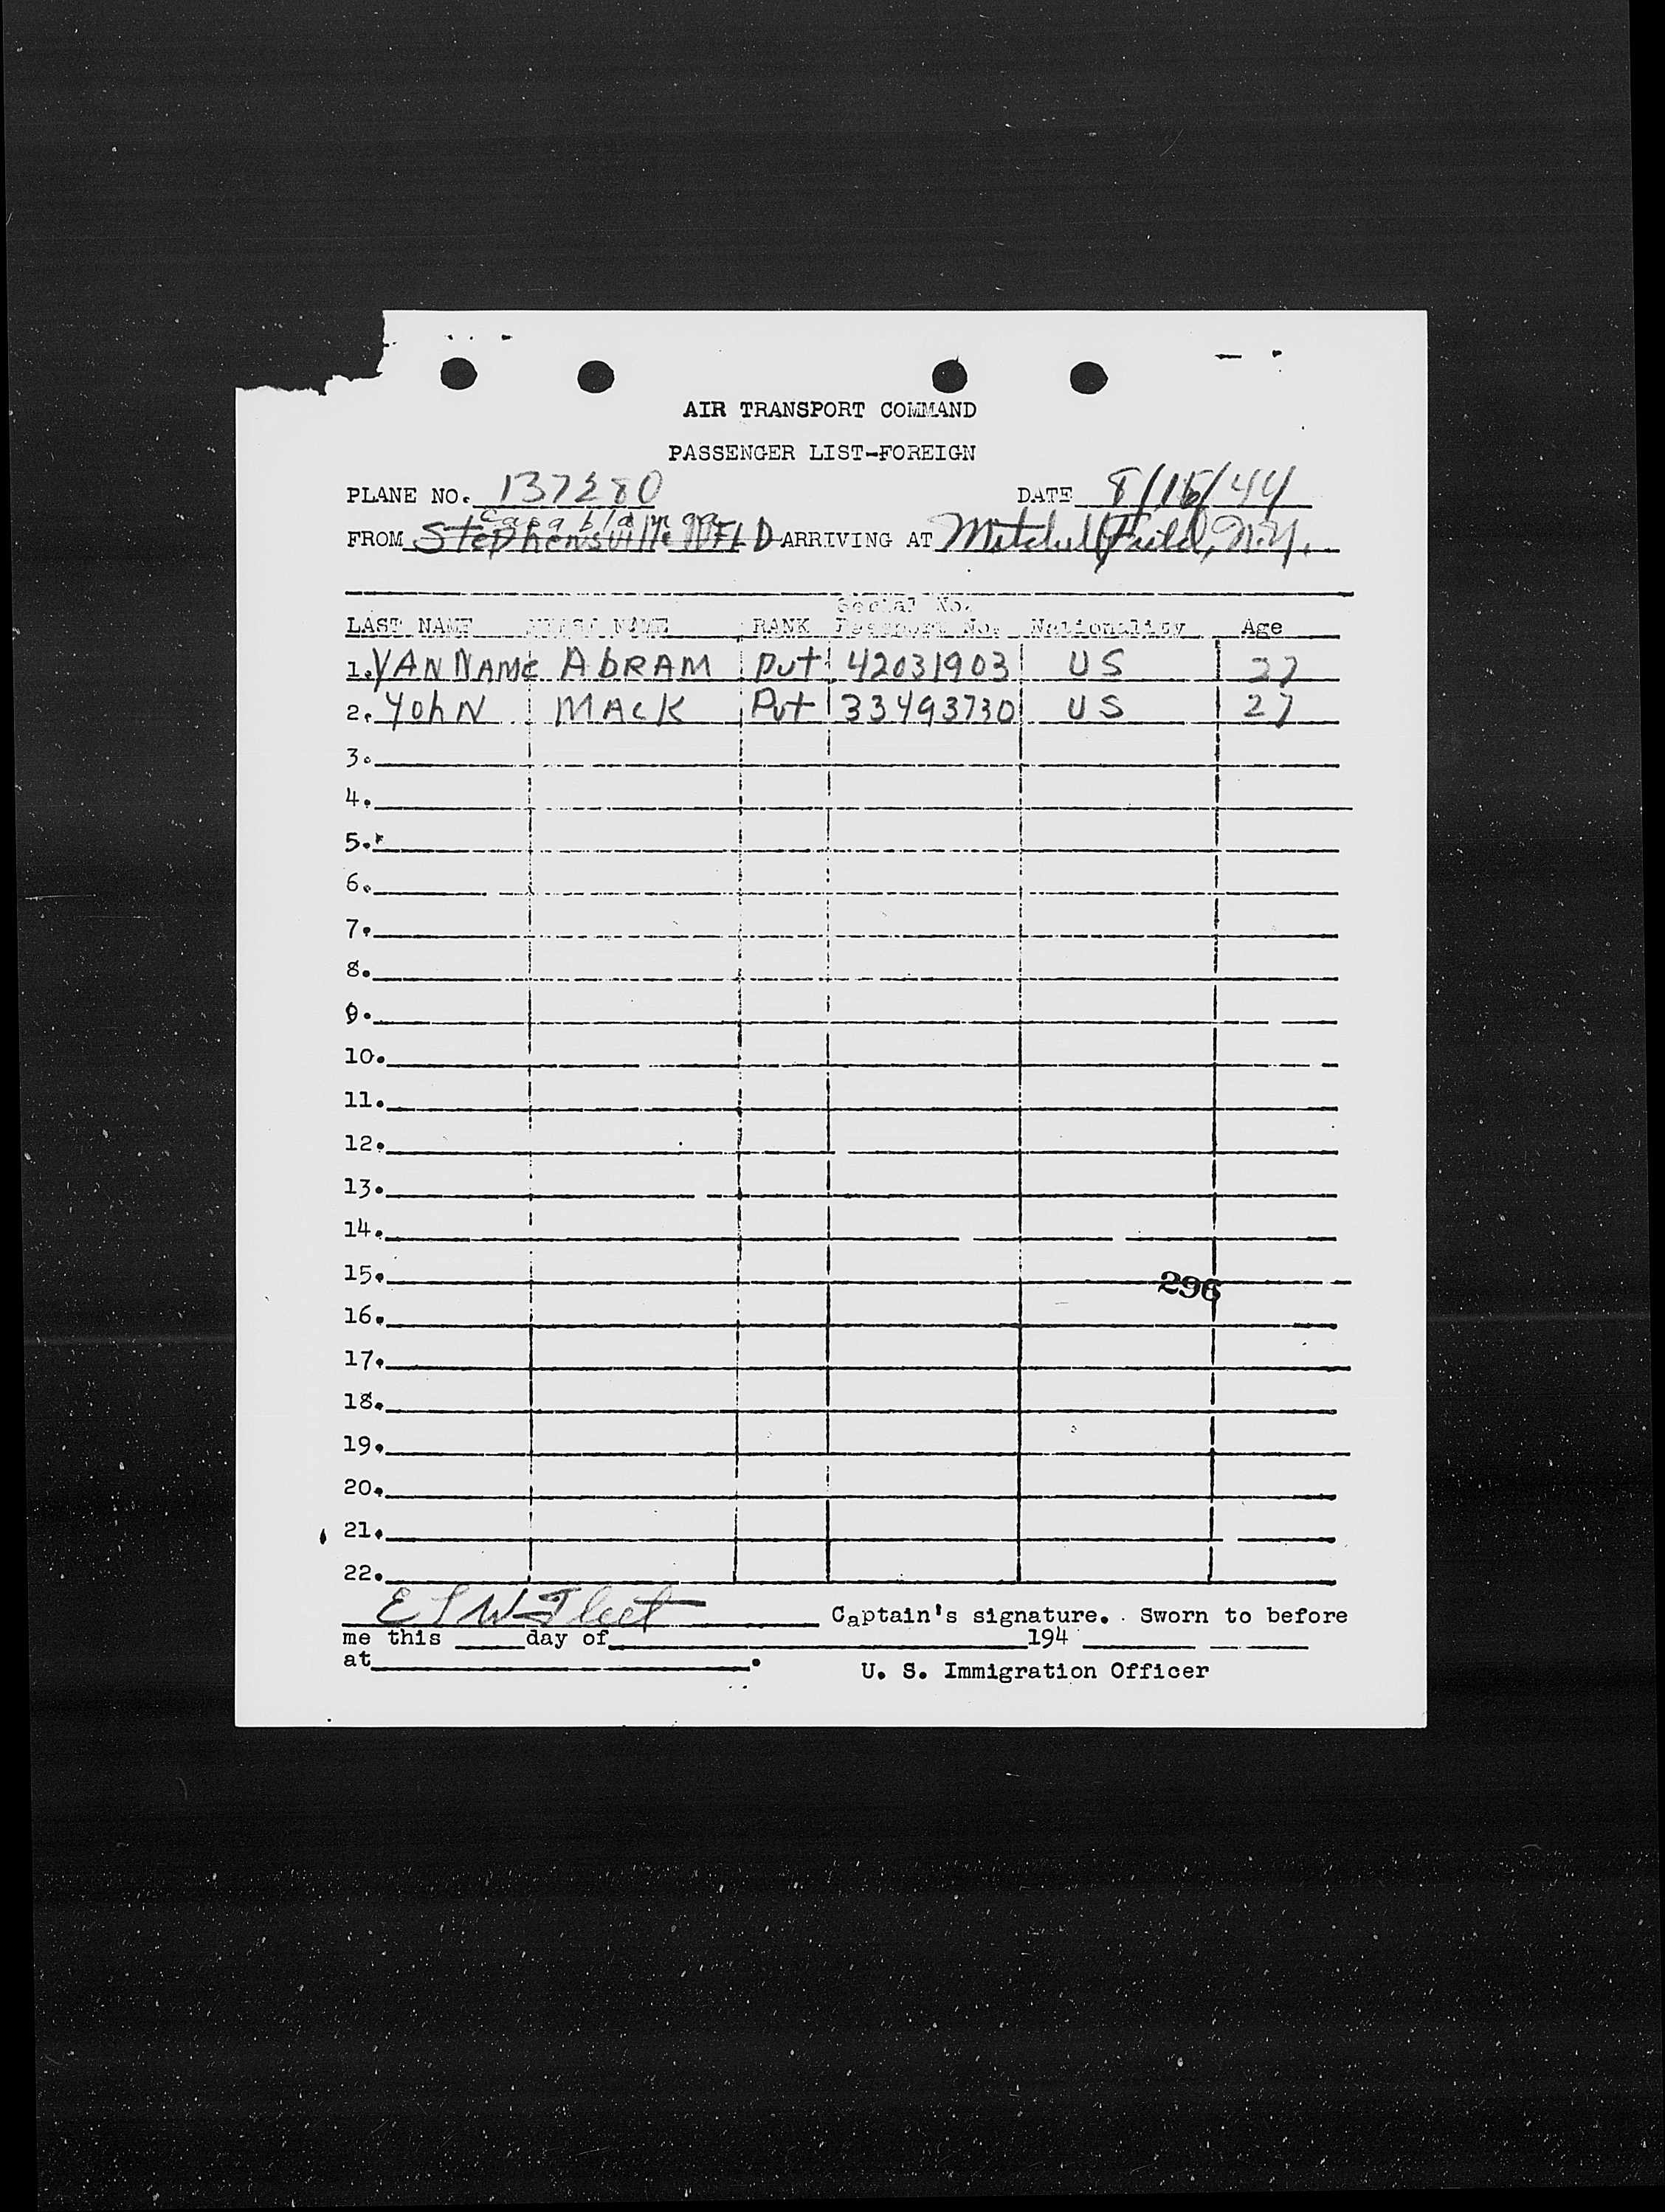 AIR TRANSPORT COMMAND
PASSENGER LIST-FOREIGN
PLANE NO. 137280 DATE 8/15/44
Casablanca
FROM Stephensville NFLD ARRIVING AT Mitchell Field, N.Y.
Serial No.
LAST NAME FIRST NAME RANK Passport No. Nationality Age
1. VAN NAME ABRAM Pvt 42031903 US 27
2. YohN MACK Pvt 33493730 US 27
3.
4.
5.
6.
7.
8.
9.
10.
11.
12.
13.
14.
15.
296
16.
17.
18.
19.
20.
21.
22.
Captain's signature. Sworn to before
me this day of 194
at .
U. S. Immigration Officer